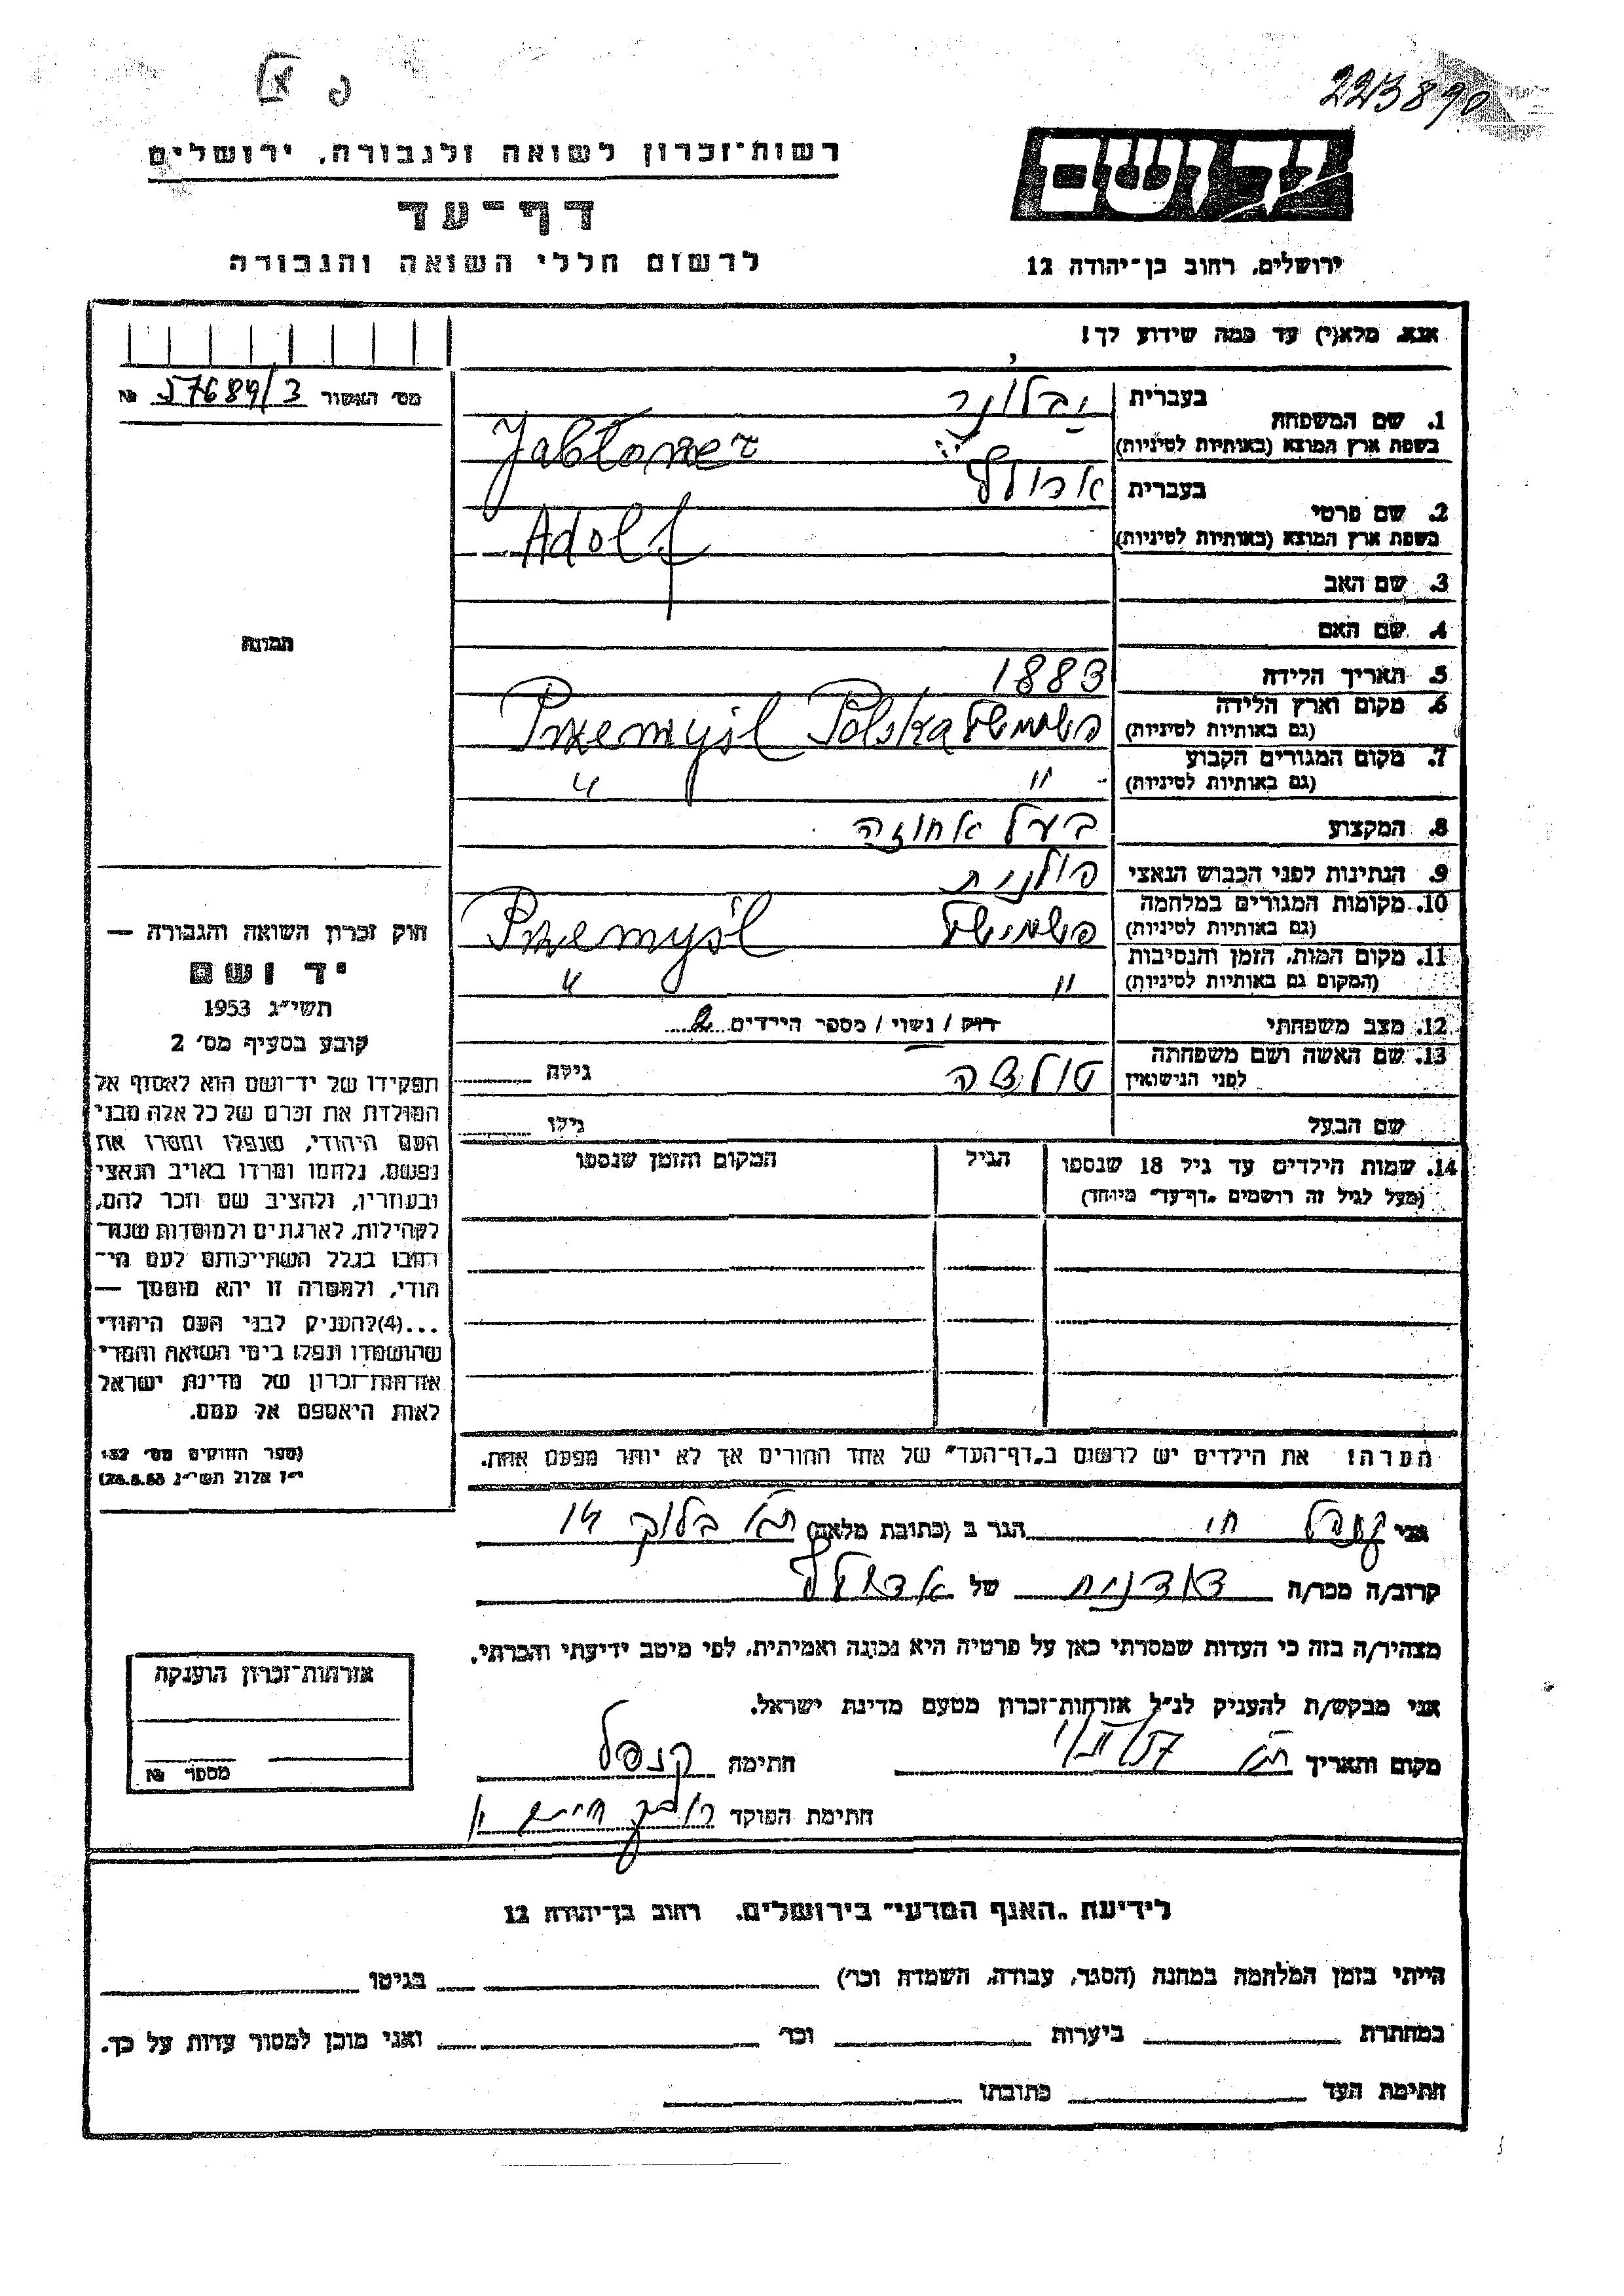 223890
רשות־זכרון לשואה ולגבורה, ירושלים
דף־עד
לרשום חללי השואה והגבורה
יד ושם
ירושלים, רחוב בן־יהודה 12
אנא, מלא(י) עד כמה שידוע לך!
מס׳ האשור 57689/3 №
1. שם המשפחה
בעברית יבלונר
בשפת ארץ המוצא (באותיות לטיניות) Jabłoner
2. שם פרטי
בעברית אדולף
בשפת ארץ המוצא (באותיות לטיניות) Adolf
3. שם האב
4. שם האם
תמונה
5. תאריך הלידה 1883
6. מקום וארץ הלידה
(גם באותיות לטיניות) פשמישל Przemyśl Polska
7. מקום המגורים הקבוע
(גם באותיות לטיניות) " "
8. המקצוע בעל אחוזה
9. הנתינות לפני הכבוש הנאצי פולנית
10. מקומות המגורים במלחמה
(גם באותיות לטיניות) פשמישל Przemyśl
11. מקום המות, הזמן והנסיבות
(המקום גם באותיות לטיניות) " "
12. מצב משפחתי רוק / נשוי / מספר הילדים 2
13. שם האשה ושם משפחתה
לפני הנישואין גילה
שם הבעל גילו
14. שמות הילדים עד גיל 18 שנספו הגיל המקום והזמן שנספו
(מעל לגיל זה רושמים „דף־עד" מיוחד)
חוק זכרון השואה והגבורה —
יד ושם
תשי״ג 1953
קובע בסעיף מס׳ 2
תפקידו של יד־ושם הוא לאסוף אל
המולדת את זכרם של כל אלה מבני
העם היהודי, שנפלו ומסרו את
נפשם, נלחמו ומרדו באויב הנאצי
ובעוזריו, ולהציב שם וזכר להם,
לקהילות, לארגונים ולמוסדות שנח־
רבו בגלל השתייכותם לעם הי־
הודי, ולמטרה זו יהא מוסמך —
...(4) להעניק לבני העם היהודי
שהושמדו ונפלו בימי השואה והמרי
אזרחות־זכרון של מדינת ישראל
לאות היאספם אל עמם.
(ספר החוקים מס׳ 132,
י״ז אלול תשי״ג 28.8.53)
הערה! את הילדים יש לרשום ב„דף־העד" של אחד ההורים אך לא יותר מפעם אחת.
אני חי הגר ב (כתובת מלאה) בלוק 14
קרוב/ה מכר/ה דודנית של אדולף
מצהיר/ה בזה כי העדות שמסרתי כאן על פרטיה היא נכונה ואמיתית, לפי מיטב ידיעתי והכרתי.
אני מבקש/ת להעניק לנ״ל אזרחות־זכרון מטעם מדינת ישראל.
מקום ותאריך חתימה
חתימת הפוקד
אזרחות־זכרון הוענקה
מספר №
לידיעת „האגף המדעי" בירושלים, רחוב בן־יהודה 12
הייתי בזמן המלחמה במחנה (הסגר, עבודה, השמדה וכו׳) בגיטו
במחתרת ביערות וכו׳ ואני מוכן למסור עדות על כך.
חתימת העד כתובתו